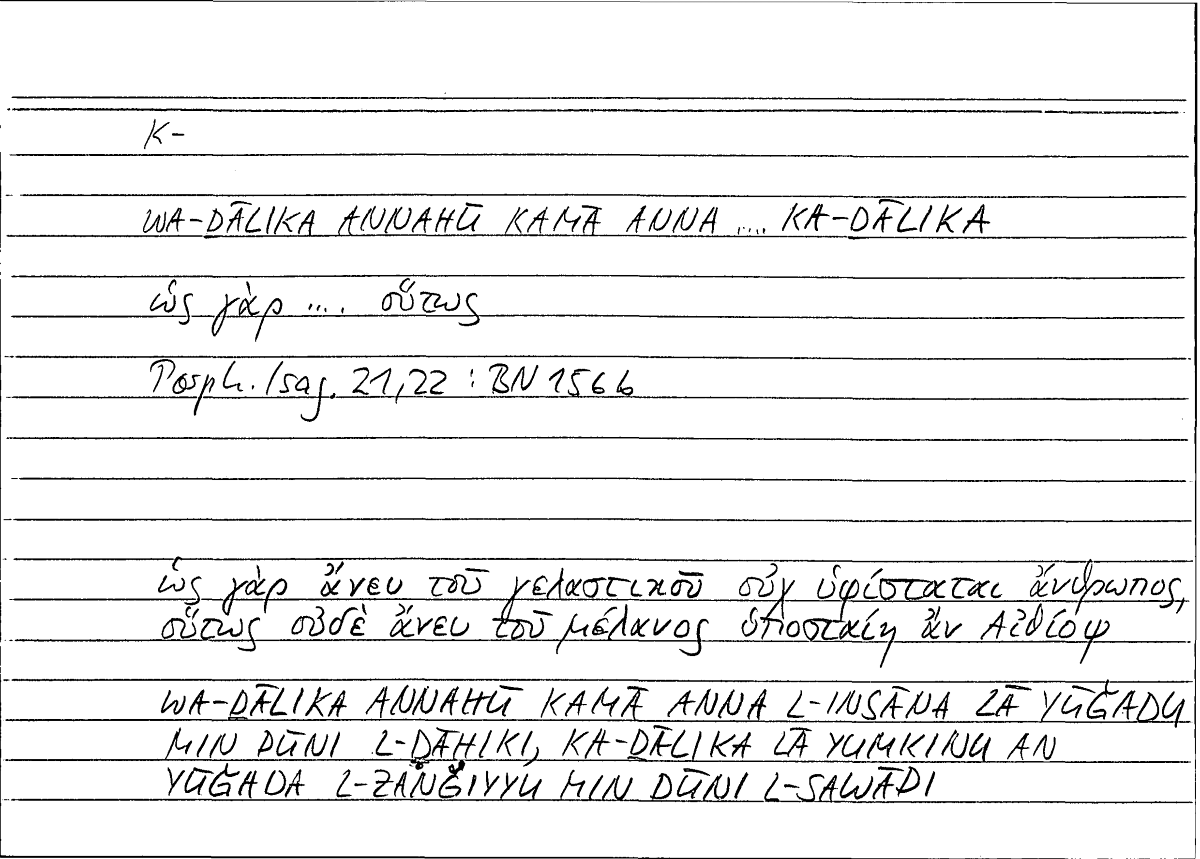 K-
WA-ḎĀLIKA ANNAHŪ KAMĀ ANNA .... KA-ḎĀLIKA
ὡς γὰρ .... οὕτως
Porph. Isag. 21,22 : BN 156b
ὡς γὰρ ἄνευ τοῦ γελαστικοῦ οὐχ ὑφίσταται ἄνθρωπος,
οὕτως οὐδὲ ἄνευ τοῦ μέλανος ὑποσταίη ἂν Αἰθίοψ
WA-ḎĀLIKA ANNAHŪ KAMĀ ANNA L-INSĀNA LĀ YŪǦADU
MIN DŪNI L-ḌĀḤIKI, KA-ḎĀLIKA LĀ YUMKINU AN
YŪǦADA L-ZANǦIYYU MIN DŪNI L-SAWĀDI